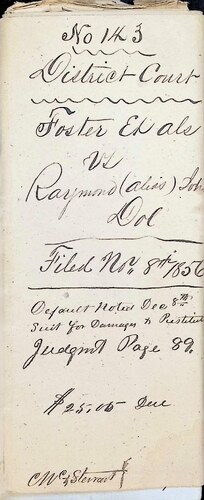 No 143
District Court
Foster Et als
vs
Raymond (alias) Joh
Doe
Filed Nov 8th 1856
Default Noted Dec 8th
Suit for Damages & Restitut
Judgmt Page 89.
$25.05 Due